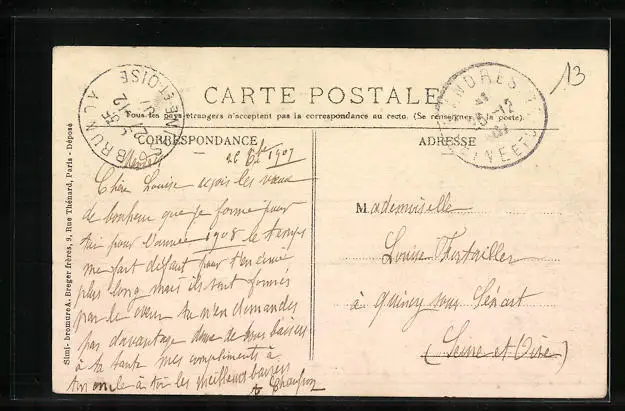 13
CARTE POSTALE
Tous les pays étrangers n'acceptent pas la correspondance au recto. (Se renseigner à la poste).
CORRESPONDANCE
ADRESSE
1907
Chère Louise reçois les vœux
de bonheur que je forme pour
toi pour l'année 1908 le temps
me fait défaut pour t'en
plus long mais ils sont formés
par le cœur tu n'en demandes
pas davantage donc de gros baisers
à ta tante mes compliments à
ton oncle à toi les meilleurs baisers
Mademoiselle
Louise
à Quincy sous Sénart
(Seine et Oise)
Simi-bromure A. Breger frères, 9, Rue Thénard, Paris - Déposé
BRUNOY
SEINE ET OISE